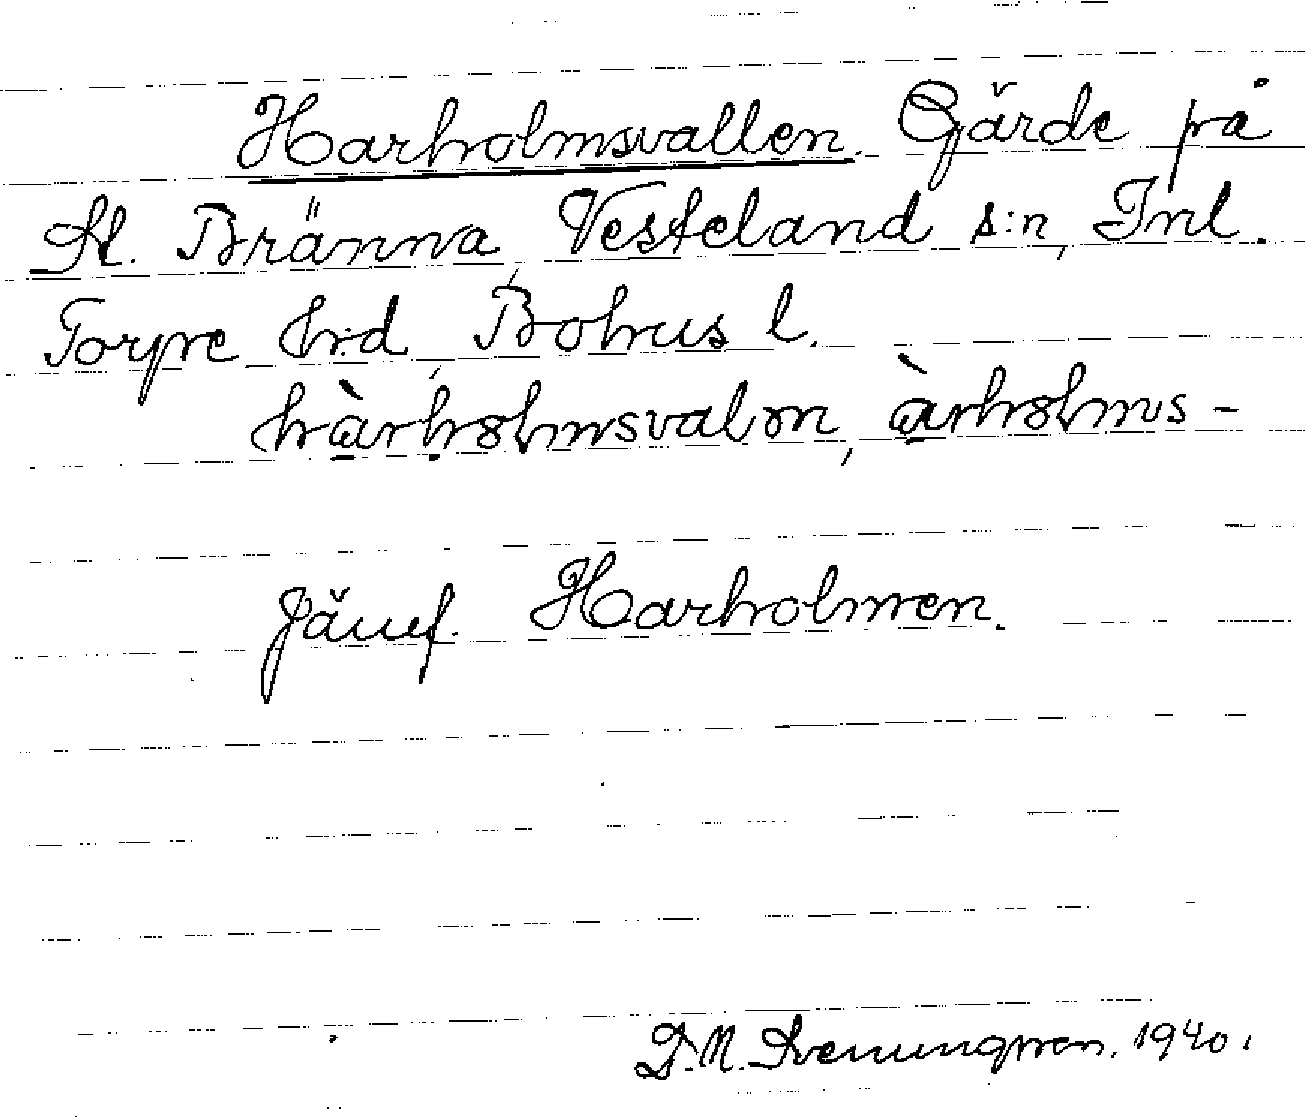 Harholmsvallen. Gärde på
St. Bränna, Vesteland s:n, Inl.
Torpe hrd, Bohus l.
hàrholmsvalən, àrholms-
Jämf. Harholmen.
D. N. Svenungsson. 1940.